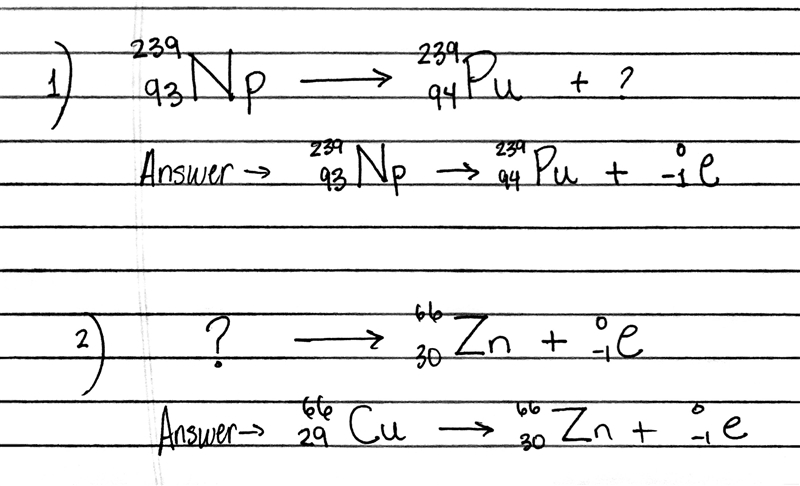 1) ²³⁹₉₃Np → ²³⁹₉₄Pu + ?
Answer → ²³⁹₉₃Np → ²³⁹₉₄Pu + ⁰₋₁e
2) ? → ⁶⁶₃₀Zn + ⁰₋₁e
Answer → ⁶⁶₂₉Cu → ⁶⁶₃₀Zn + ⁰₋₁e